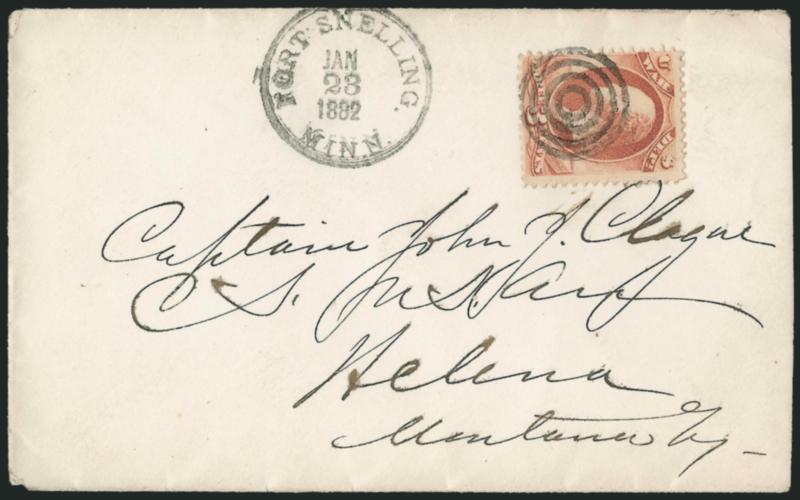 FORT SNELLING.
JAN
23
1882
MINN.
U. S. WAR DEPT.
3
Captain John J. Clague
C. S. U. S. Army
Helena
Montana Ty-